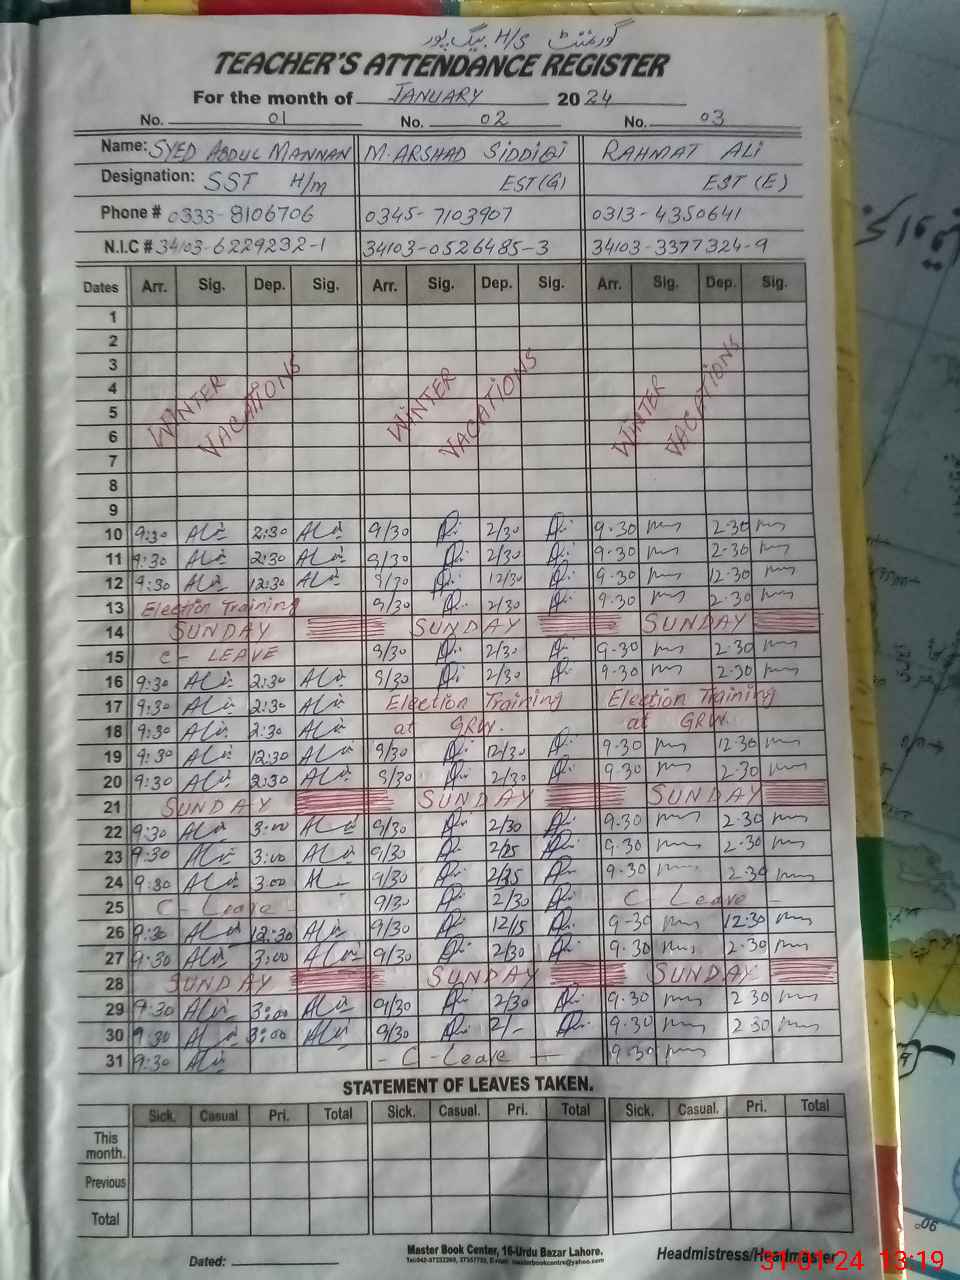 گورنمنٹ H/S بیگ پور
TEACHER'S ATTENDANCE REGISTER
For the month of JANUARY 2024
No. 01 No. 02 No. 03
Name: SYED ABDUL MANNAN M. ARSHAD SIDDIQI RAHMAT ALI
Designation: SST H/m EST (G) EST (E)
Phone # 0333-8106706 0345-7103907 0313-4350641
N.I.C # 34103-6229232-1 34103-0526485-3 34103-3377324-9
Dates Arr. Sig. Dep. Sig. Arr. Sig. Dep. Sig. Arr. Sig. Dep. Sig.
1
2
3
4
5
6
7
8
9
WINTER VACATIONS WINTER VACATIONS WINTER VACATIONS
10 9:30 2:30 9/30 2/30 9.30 2.30
11 9:30 2:30 9/30 2/30 9.30 2.30
12 9:30 12:30 9/30 12/30 9.30 12.30
13 Election Training 9/30 2/30 9.30 2.30
14 SUNDAY SUNDAY SUNDAY
15 C - LEAVE 9/30 2/30 9.30 2.30
16 9:30 2:30 9/30 2/30 9.30 2.30
17 9:30 2:30 Election Training Election Training
18 9:30 2:30 at GRW. at GRW.
19 9:30 12:30 9/30 12/30 9.30 12.30
20 9:30 2:30 9/30 2/30 9.30 2.30
21 SUNDAY SUNDAY SUNDAY
22 9:30 3:00 9/30 2/30 9.30 2.30
23 9:30 3:00 9/30 9.30 2.30
24 9:30 3:00 9/30 9.30 2.30
25 C - Leave - 9/30 2/30 C - Leave -
26 9:30 12:30 9/30 12/15 9.30 12.30
27 9:30 3:00 9/30 2/30 9.30 2.30
28 SUNDAY SUNDAY SUNDAY
29 9:30 3:00 9/30 2/30 9.30 2.30
30 9:30 3:00 9/30 2/- 9.30 2.30
31 9:30 - C - Leave - 9.30
STATEMENT OF LEAVES TAKEN.
Sick. Casual. Pri. Total Sick. Casual. Pri. Total Sick. Casual. Pri. Total
This month.
Previous
Total
Dated: Master Book Center, 16-Urdu Bazar Lahore. Headmistress/Headmaster
31-01-24 13:19